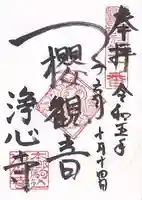 奉拝
令和五年
十月十四日
櫻観音
浄心寺